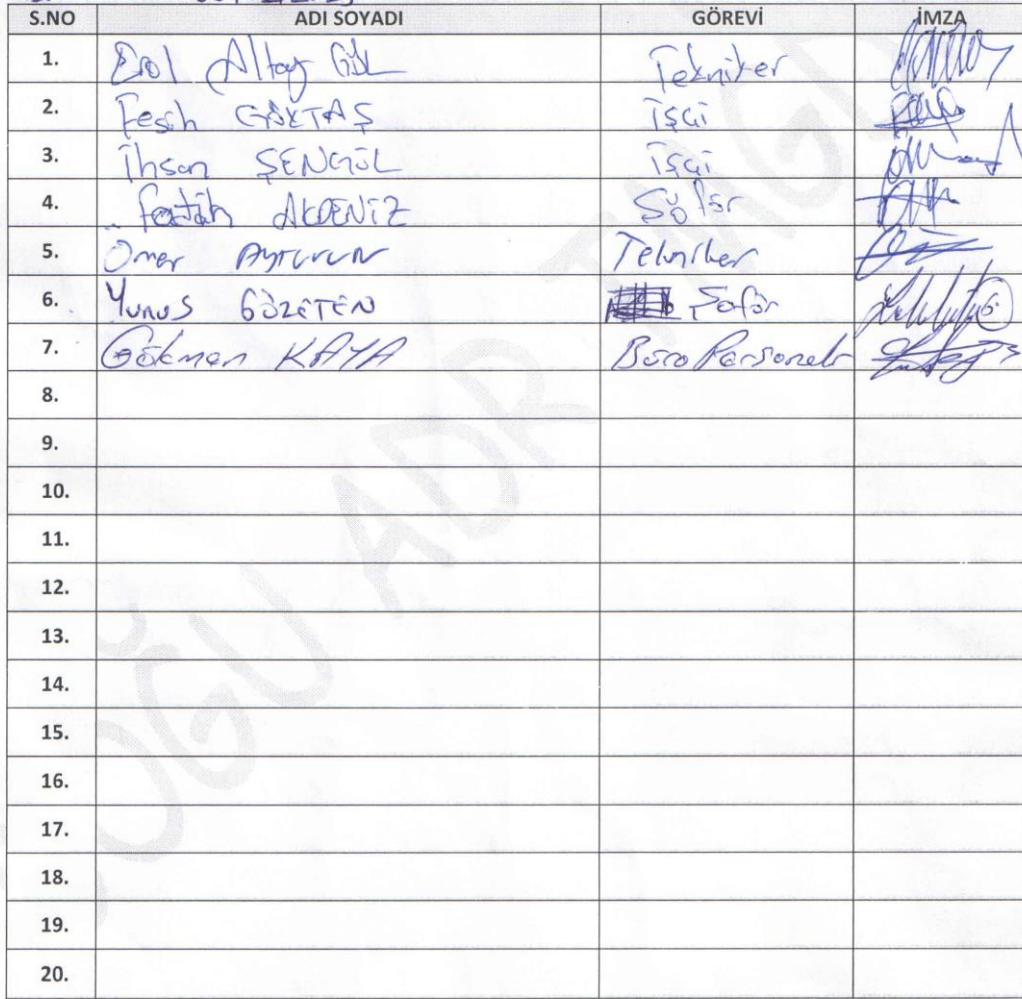 S.NO ADI SOYADI GÖREVİ İMZA
1. Erol Altay GÜL Tekniker
2. Fesih GÖKTAŞ İşçi
3. İhsan ŞENGÜL İşçi
4. Fatih AKDENİZ Şöför
5. Ömer Tekniker
6. Yunus GÖZETEN Şoför
7. Gökmen KAYA Büro Personeli
8.
9.
10.
11.
12.
13.
14.
15.
16.
17.
18.
19.
20.